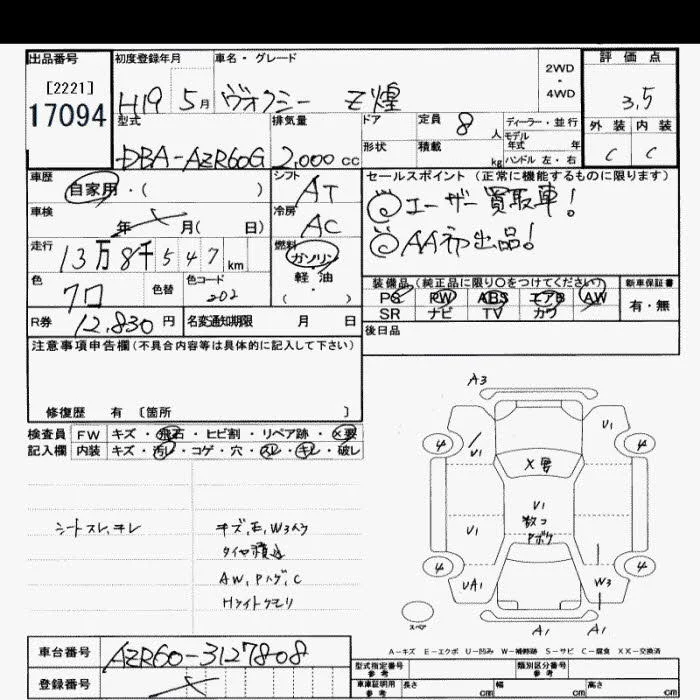 出品番号
[2221]
17094
初度登録年月
H19 5月
車名・グレード
ヴォクシー Z煌
2WD
・
4WD
評価点
3.5
外装 内装
C C
型式
DBA-AZR60G
排気量
2,000 cc
ドア
形状
定員 8 人
積載 kg
ディーラー・並行
モデル
年式 年
ハンドル 左・右
車歴
自家用・( )
シフト
AT
車検
年 月( 日)
冷房
AC
走行
13万8千547 km
燃料
ガソリン
軽・油
( )
色
クロ
色替
色コード
202
R券 12,830 円
名変通知期限 月 日
セールスポイント(正常に機能するものに限ります)
◎ユーザー買取車!
◎AA初出品!
装備品(純正品に限り〇をつけてください)
PS PW ABS エアB AW
SR ナビ TV カワ
新車保証書
有・無
後日品
注意事項申告欄(不具合内容等は具体的に記入して下さい)
修復歴 有〔箇所 〕
検査員
記入欄
FW キズ・飛石・ヒビ割・リペア跡・X要
内装 キズ・汚レ・コゲ・穴・スレ・キレ・破レ
シートスレ、キレ
キズ、E、W3入ウ
タイヤ積込
AW、Pハゲ、C
Hライトクモリ
A3
U1
4
U1
4
X要
U1
数コ
Pボケ
U1
4
UA1
4
W3
スペア
A1
A1
A-キズ E-エクボ U-凹み W-補修跡 S-サビ C-腐食 XX-交換済
車台番号
AZR60-3127808
登録番号
型式指定番号
参考
類別区分番号
参考
車庫証明用
参考
長さ cm
幅 cm
高さ cm